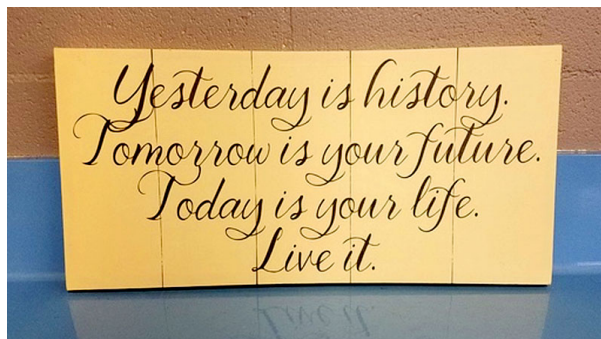 Yesterday is history.
Tomorrow is your future.
Today is your life.
Live it.
Live it.